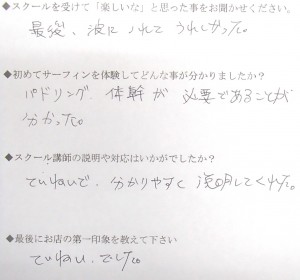 ◆スクールを受けて「楽しいな」と思った事をお聞かせください。
最後、波にのれてうれしかった。
◆初めてサーフィンを体験してどんな事が分かりましたか？
パドリング、体幹が必要であることが
分かった。
◆スクール講師の説明や対応はいかがでしたか？
ていねいで、分かりやすく説明してくれた。
◆最後にお店の第一印象を教えて下さい
ていねい、でした。